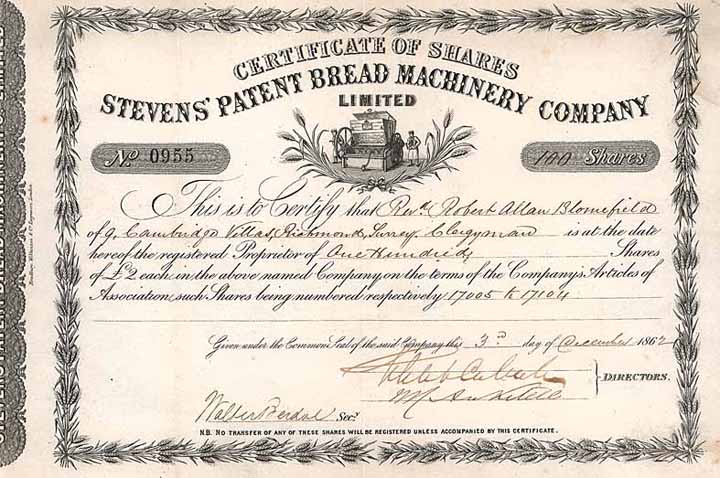 CERTIFICATE OF SHARES
STEVENS' PATENT BREAD MACHINERY COMPANY
LIMITED
No 0955
100 Shares
This is to Certify that Revd. Robert Allan Blomefield
of 9, Cambridge Villas, Richmond, Surrey, Clergyman is at the date
hereof the registered Proprietor of One Hundred Shares
of £2 each in the above named Company on the terms of the Company's Articles of
Association, such Shares being numbered respectively 17005 to 17104
Given under the Common Seal of the said Company this 3d day of December 1862
DIRECTORS.
Walter Secy.
N.B. NO TRANSFER OF ANY OF THESE SHARES WILL BE REGISTERED UNLESS ACCOMPANIED BY THIS CERTIFICATE.